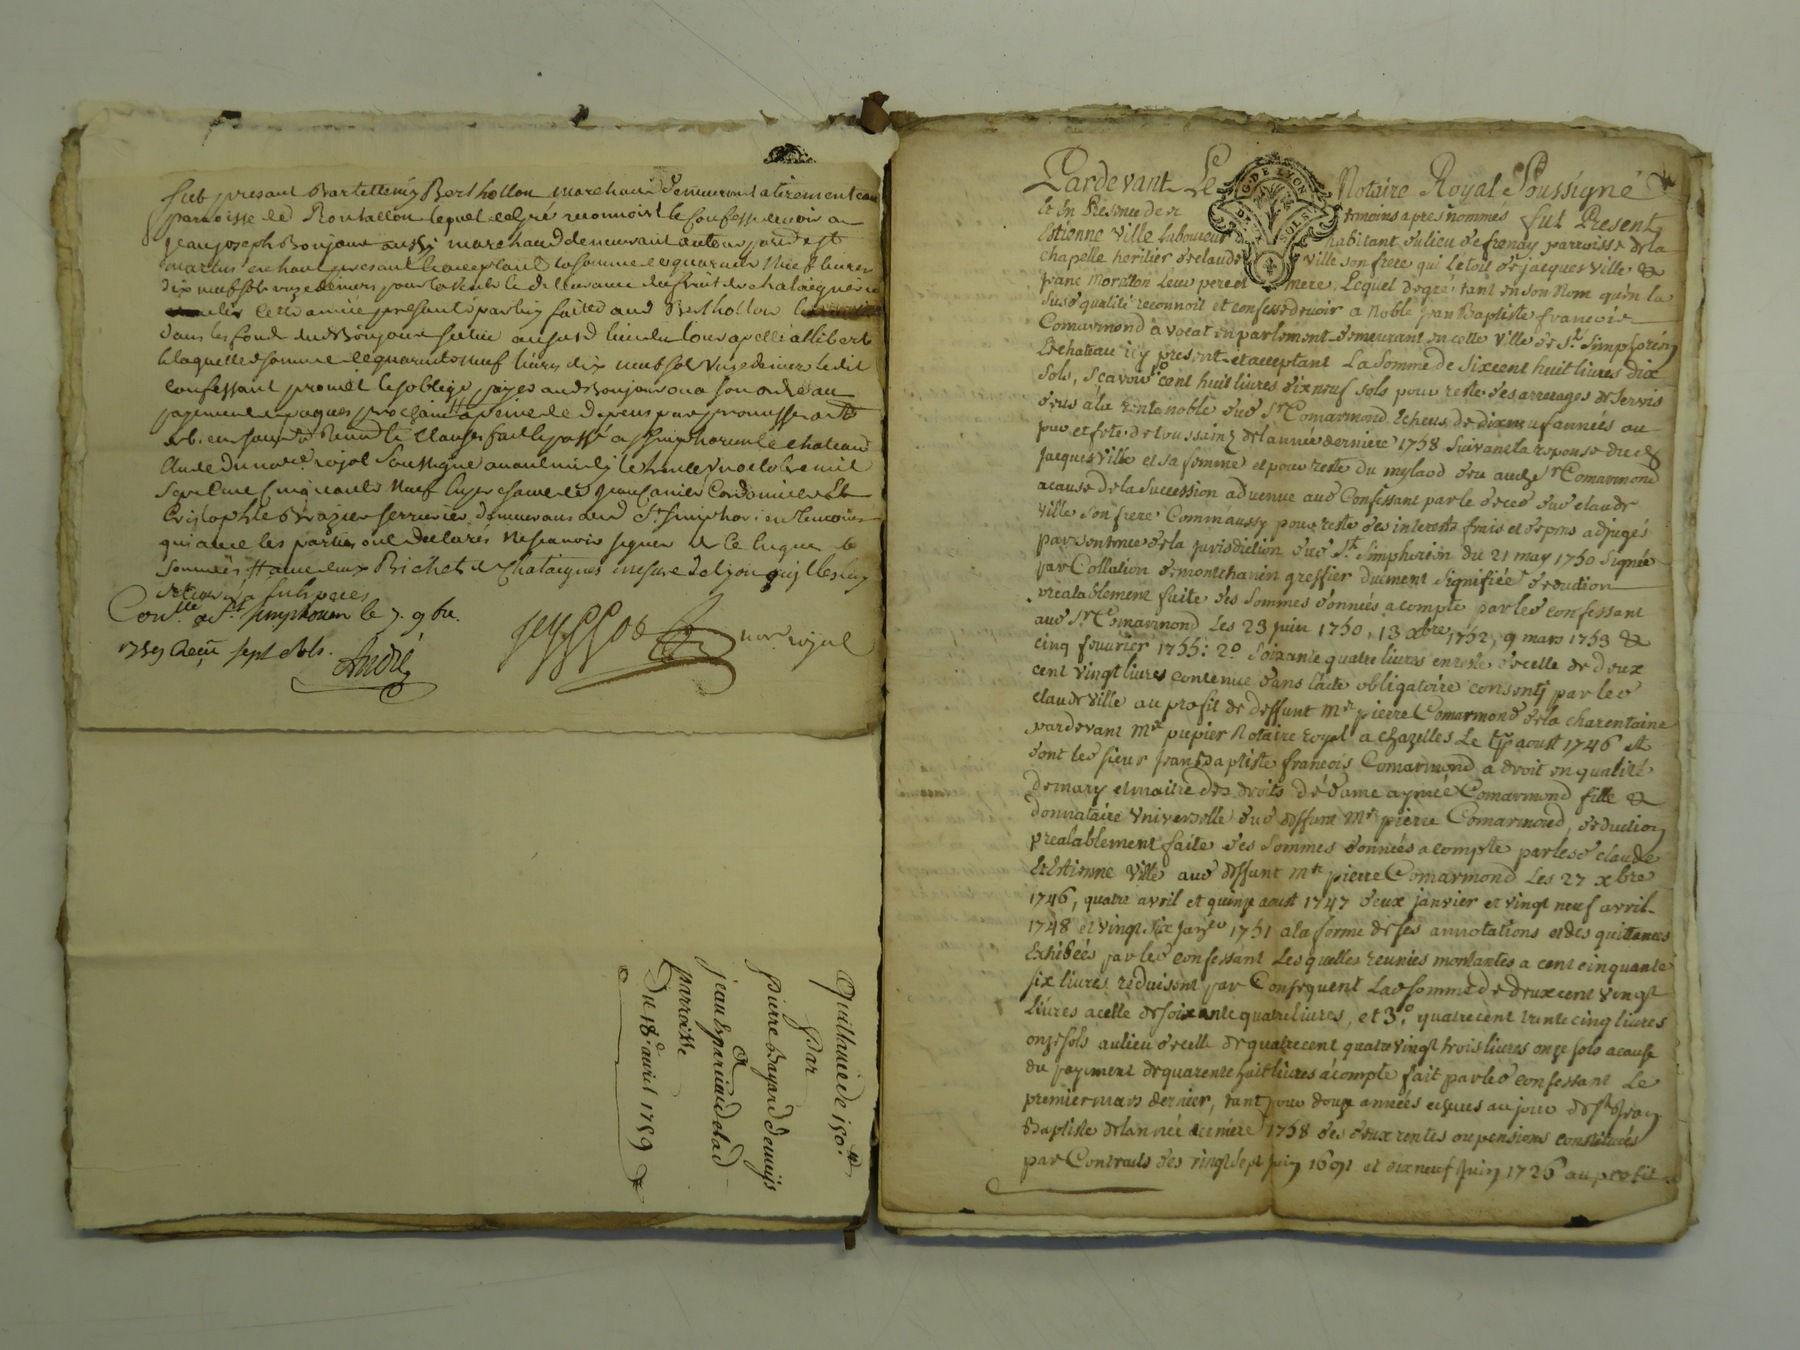 fut presant Barthellemy Berthollon marchand demeurant a tirement eau
parroisse de Rontallon lequel de gré reconnoist & Confesse devoir a
jean joseph Bonjour aussy marchand demeurant
martin en haut presant & acceptant la somme de quarante Neuf livres
dix neuf sols onze deniers pour la vente & delivrance du fruit de chataignes
cette année presante par luy faitte aud Berthollon
dans les fonds dud Bonjour
laquelle somme de quarante neuf livres dix neuf sols onze deniers le dit
confessant promet & s'oblige payer aud Bonjour ou a son ordre au
jugement de paques prochain a peine de depens par promesse
clauses fait & passé a st simphorien le chateau
du notre royal Soussigné
Sept Cent Cinquante Neuf Cordonnier Et
Cristophle Brazier serrurier demeurans aud St Simphorien
qui avec les parties ont declarés Ne scavoir signer de ce enquis &
sommés # avec deux Bichets de Chataignes mesure de lyon
Conllé a St Simphorien le 7. 9bre.
1759 Receu sept sols.
André
nore royal
Quittance de 150.
Par
pierre Bayard
jean
parroisse
Du 18e avril 1759
Pardevant Le Notaire Royal Soussigné
Et En Présence des temoins apres nommés fut Present
Estienne Ville laboureur habitant du lieu de frenay parroisse de la
chapelle heritier de claude Ville son frere qui l'etoit de jacques Ville &
jeane Morillon Leurs pere et mere, Lequel de gré tant en son Nom qu'en la
susd qualité reconnoit et confesse devoir a Noble jean Baptiste francois
Comarmond avocat en parlement demeurant en cette Ville de St Simphorien
Le chateau icy present et acceptant La Somme de Six cent huit livres dix
sols, Scavoir 1o cent huit livres dix neuf sols pour reste des arrerages de servis
deus a la rente noble dud Sr Comarmond Echeus de dix neuf années au
jour et fete de toussaint de l'année derniere 1758 Suivant la reponse dud
jacques Ville et sa femme et pour reste du mylaod deu aud Sr Comarmond
a cause de la succession advenue aud Confessant par le deced dud claude
Ville son frere Comm'aussy pour reste des interets frais et depens adjugés
par sentence de la jurisdiction dud St Simphorien du 21 may 1750 Signée
par Collation de montchanin greffier duement signifiée deduction
prealablement faite des sommes données a compte par led confessant
aud Sr Comarmond Les 23 juin 1750, 13 xbre 1752, 9 mars 1753 &
cinq fevrier 1755: 2o Soixante quatre livres en reste de celle de deux
cent vingt livres contenue dans l'acte obligatoire consenty par led
claude Ville au profit de deffunt Mre pierre Comarmond de la charentaine
pardevant Me pupier Notaire royal a chazelles Le aoust 1746 et
dont led sieur jean Baptiste francois Comarmond a droit en qualité
de mary et maitre des droits de dame aymée Comarmond fille &
donnataire Universelle dud deffunt Mre pierre Comarmond, deduction
prealablement faite des Sommes données a compte par lesd claude
Et Etienne Ville aud deffunt Mre pierre Comarmond Les 27 xbre
1746, quatre avril et quinze aoust 1747 deux janvier et vingt neuf avril
1748 et vingt six janer 1751 a la forme de ses annotations et des quittances
Exhibées par led confessant Les quelles reunies montantes a cent cinquante
six livres reduisent par Consequent Lad somme de deux cent vingt
livres a celle de soixante quatre livres, et 3.o quatre cent trente cinq livres
onze sols au lieu de celle de quatre cent quatre vingt trois livres onze sols a cause
du payement de quarente huit livres a compte fait par led confessant Le
premier mars dernier, tant pour douze années echues au jour de st Jean
Baptiste de l'année derniere 1758 des deux rentes ou pensions constituées
par Contracts des vingt sept juin 1691 et dix neuf juin 1726 au profit